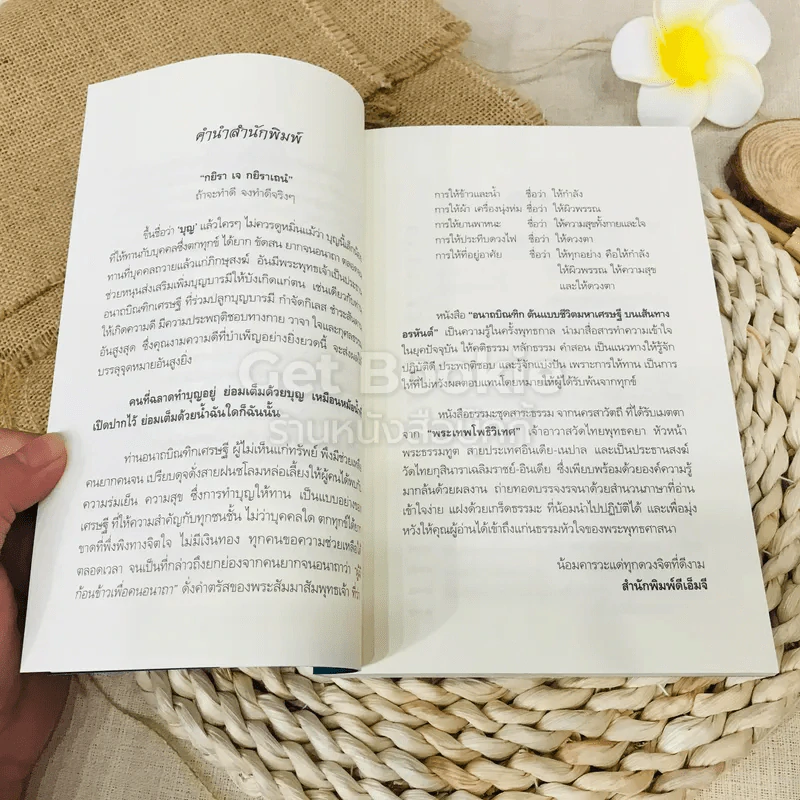 คำนำสำนักพิมพ์
"กยิรา เจ กยิราเถนํ"
ถ้าจะทำดี จงทำดีจริงๆ
ขึ้นชื่อว่า 'บุญ' แล้วใครๆ ไม่ควรดูหมิ่นแม้ว่า บุญนี้เล็กน้อย
ที่ให้ทานกับบุคคลซึ่งตกทุกข์ ได้ยาก ขัดสน ยากจนอนาถา ตลอดจน
ทานที่บุคคลถวายแล้วแก่ภิกษุสงฆ์ อันมีพระพุทธเจ้าเป็นประธาน
ช่วยหนุนส่งเสริมเพิ่มบุญบารมีให้บังเกิดแก่ตน เช่นเดียวกับท่าน
อนาถบิณฑิกเศรษฐี ที่ร่วมปลูกบุญบารมี กำจัดกิเลส ชำระสันดาน
ให้เกิดความดี มีความประพฤติชอบทางกาย วาจา ใจและกุศลธรรม
อันสูงสุด ซึ่งคุณงามความดีที่บำเพ็ญอย่างยิ่งยวดนี้ จะส่งผลให้
บรรลุจุดหมายอันสูงยิ่ง
คนที่ฉลาดทำบุญอยู่ ย่อมเต็มด้วยบุญ เหมือนหม้อน้ำที่
เปิดปากไว้ ย่อมเต็มด้วยน้ำฉันใดก็ฉันนั้น
ท่านอนาถบิณฑิกเศรษฐี ผู้ไม่เห็นแก่ทรัพย์ พึงมีช่วยเหลือ
คนยากคนจน เปรียบดุจดั่งสายฝนชโลมหล่อเลี้ยงให้ผู้คนได้พบกับ
ความร่มเย็น ความสุข ซึ่งการทำบุญให้ทาน เป็นแบบอย่างของ
เศรษฐี ที่ให้ความสำคัญกับทุกชนชั้น ไม่ว่าบุคคลใด ตกทุกข์ได้ยาก
ขาดที่พึ่งพิงทางจิตใจ ไม่มีเงินทอง ทุกคนขอความช่วยเหลือได้
ตลอดเวลา จนเป็นที่กล่าวถึงยกย่องจากคนยากจนอนาถาว่า "ผู้มี
ก้อนข้าวเพื่อคนอนาถา" ดั่งคำตรัสของพระสัมมาสัมพุทธเจ้า ที่ว่า
การให้ข้าวและน้ำ ชื่อว่า ให้กำลัง
การให้ผ้า เครื่องนุ่งห่ม ชื่อว่า ให้ผิวพรรณ
การให้ยานพาหนะ ชื่อว่า ให้ความสุขทั้งกายและใจ
การให้ประทีปดวงไฟ ชื่อว่า ให้ดวงตา
การให้ที่อยู่อาศัย ชื่อว่า ให้ทุกอย่าง คือให้กำลัง
ให้ผิวพรรณ ให้ความสุข
และให้ดวงตา
หนังสือ "อนาถบิณฑิก ต้นแบบชีวิตมหาเศรษฐี บนเส้นทาง
อรหันต์" เป็นความรู้ในครั้งพุทธกาล นำมาสื่อสารทำความเข้าใจ
ในยุคปัจจุบัน ให้คติธรรม หลักธรรม คำสอน เป็นแนวทางให้รู้จัก
ปฏิบัติดี ประพฤติชอบ และรู้จักแบ่งปัน เพราะการให้ทาน เป็นการ
ให้ที่ไม่หวังผลตอบแทนโดยหมายให้ผู้ได้รับพ้นจากทุกข์
หนังสือธรรมะชุดสาระธรรม จากนครสาวัตถี ที่ได้รับเมตตา
จาก "พระเทพโพธิวิเทศ" เจ้าอาวาสวัดไทยพุทธคยา หัวหน้า
พระธรรมทูต สายประเทศอินเดีย-เนปาล และเป็นประธานสงฆ์
วัดไทยกุสินาราเฉลิมราชย์-อินเดีย ซึ่งเพียบพร้อมด้วยองค์ความรู้
มากล้นด้วยผลงาน ถ่ายทอดบรรจงรจนาด้วยสำนวนภาษาที่อ่าน
เข้าใจง่าย แฝงด้วยเกร็ดธรรมะ ที่น้อมนำไปปฏิบัติได้ และเพื่อมุ่ง
หวังให้คุณผู้อ่านได้เข้าถึงแก่นธรรมหัวใจของพระพุทธศาสนา
น้อมคารวะแด่ทุกดวงจิตที่ดีงาม
สำนักพิมพ์ดีเอ็มจี
Get Bookie